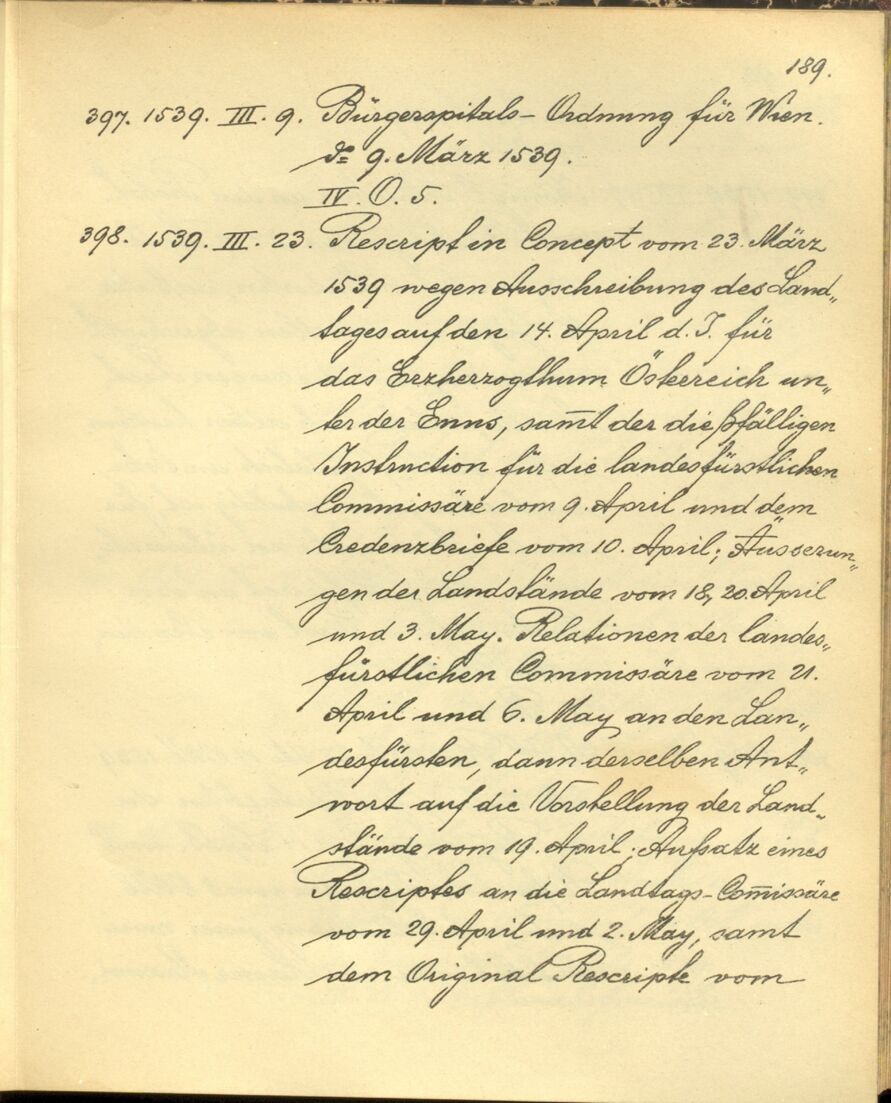 189.
397. 1539. III. 9. Bürgerspitals-Ordnung für Wien.
do 9. März 1539.
IV. O. 5.
398. 1539. III. 23. Rescript in Concept vom 23. März
1539 wegen Ausschreibung des Land„
tages auf den 14. April d. J. für
das Erzherzogthum Österreich un„
ter der Enns, sam̅t der dießfälligen
Instruction für die landesfürstlichen
Commissäre vom 9. April und dem
Credenzbriefe vom 10. April; Äusserun„
gen der Landstände vom 18, 20. April
und 3. May. Relationen der landes„
fürstlichen Commissäre vom 21.
April und 6. May an den Lan„
desfürsten, dann derselben Ant„
wort auf die Vorstellung der Land„
stände vom 19. April; Aufsatz eines
Rescriptes an die Landtags-Com̅issäre
vom 29. April und 2. May, samt
dem Original Rescripte vom